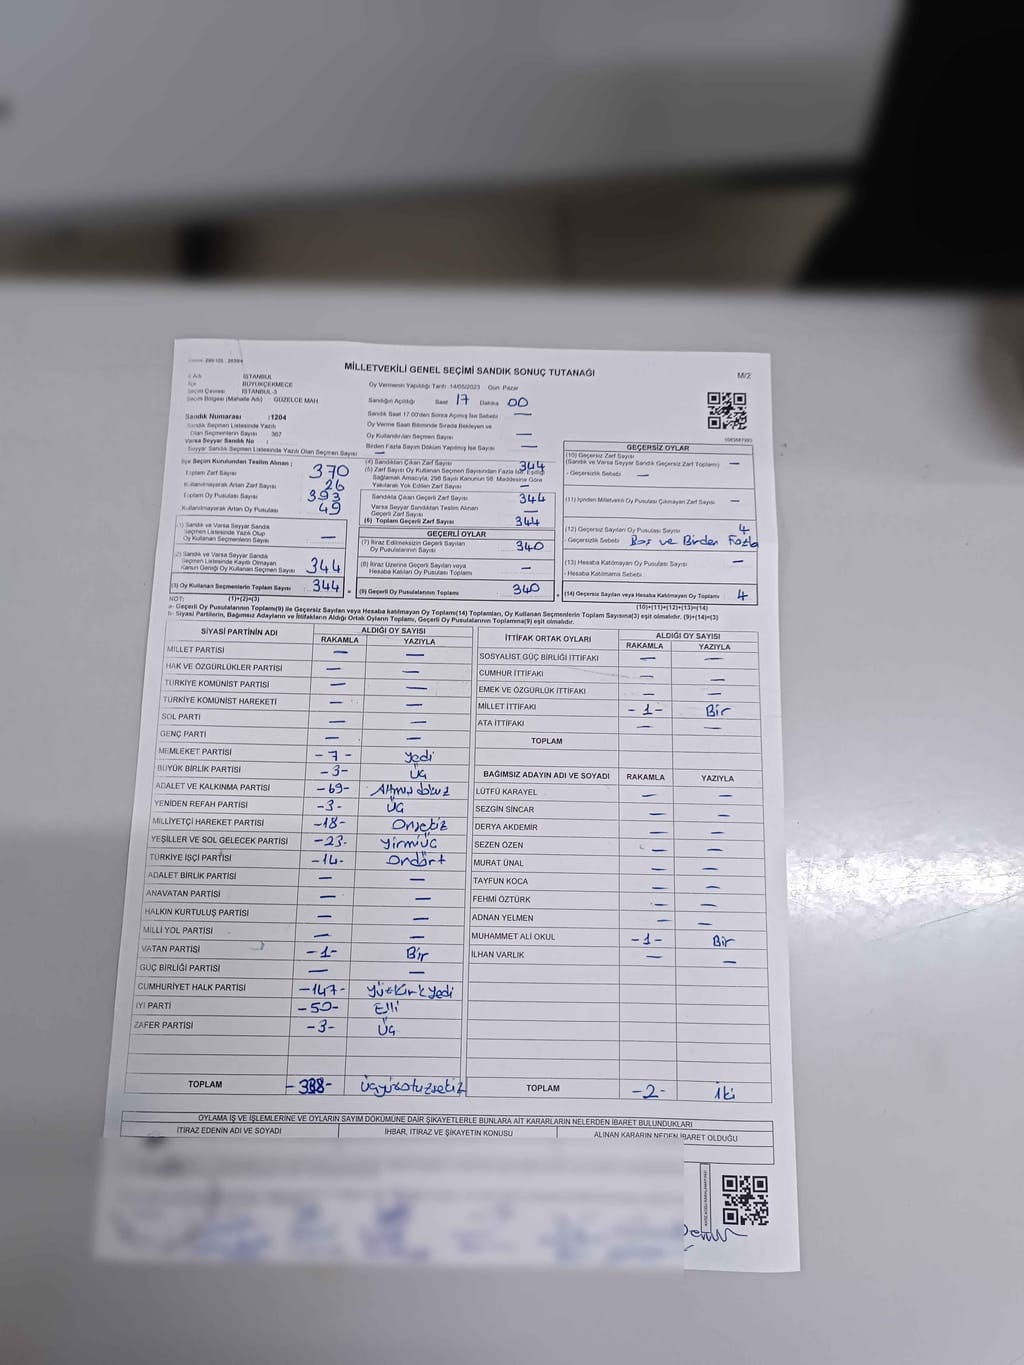 MİLLETVEKİLİ GENEL SEÇİMİ SANDIK SONUÇ TUTANAĞI
M/2
İSTANBUL
BÜYÜKÇEKMECE
İSTANBUL-3
Seçim Bölgesi (Mahalle Adı) : GÜZELCE MAH.
Oy Vermenin Yapıldığı Tarih: 14/05/2023 Gün Pazar
Sandığın Açıldığı Saat 17 Dakika 00
Sandık Numarası :1204
Sandık Seçmen Listesinde Yazılı
Olan Seçmenlerin Sayısı : 367
Varsa Seyyar Sandık No :
Seyyar Sandık Seçmen Listesinde Yazılı Olan Seçmen Sayısı —
Sandık Saat 17.00'den Sonra Açılmış İse Sebebi —
Oy Verme Saati Bitiminde Sırada Bekleyen ve
Oy Kullandırılan Seçmen Sayısı —
Birden Fazla Sayım Döküm Yapılmış İse Sayısı —
İlçe Seçim Kurulundan Teslim Alınan ;
Toplam Zarf Sayısı 370
Kullanılmayarak Artan Zarf Sayısı 26
Toplam Oy Pusulası Sayısı 393
Kullanılmayarak Artan Oy Pusulası 49
(1) Sandık ve Varsa Seyyar Sandık
Seçmen Listesinde Yazılı Olup
Oy Kullanan Seçmenlerin Sayısı —
(2) Sandık ve Varsa Seyyar Sandık
Seçmen Listesinde Kayıtlı Olmayan
Kanun Gereği Oy Kullanan Seçmen Sayısı 344
(3) Oy Kullanan Seçmenlerin Toplam Sayısı 344
(1)+(2)=(3)
(4) Sandıktan Çıkan Zarf Sayısı 344
(5) Zarf Sayısı Oy Kullanan Seçmen Sayısından Fazla İse, Eşitliği
Sağlamak Amacıyla; 298 Sayılı Kanunun 98. Maddesine Göre
Yakılarak Yok Edilen Zarf Sayısı —
Sandıkta Çıkan Geçerli Zarf Sayısı 344
Varsa Seyyar Sandıktan Teslim Alınan
Geçerli Zarf Sayısı —
(6) Toplam Geçerli Zarf Sayısı 344
GEÇERLİ OYLAR
(7) İtiraz Edilmeksizin Geçerli Sayılan
Oy Pusulalarının Sayısı 340
(8) İtiraz Üzerine Geçerli Sayılan veya
Hesaba Katılan Oy Pusulası Toplamı —
(9) Geçerli Oy Pusulalarının Toplamı 340
GEÇERSİZ OYLAR
(10) Geçersiz Zarf Sayısı
(Sandık ve Varsa Seyyar Sandık Geçersiz Zarf Toplamı) —
- Geçersizlik Sebebi —
(11) İçinden Milletvekili Oy Pusulası Çıkmayan Zarf Sayısı —
(12) Geçersiz Sayılan Oy Pusulası Sayısı 4
- Geçersizlik Sebebi Boş ve Birden Fazla
(13) Hesaba Katılmayan Oy Pusulası Sayısı —
- Hesaba Katılmama Sebebi
(14) Geçersiz Sayılan veya Hesaba Katılmayan Oy Toplamı 4
(10)+(11)+(12)+(13)=(14)
NOT;
a- Geçerli Oy Pusulalarının Toplamı(9) ile Geçersiz Sayılan veya Hesaba katılmayan Oy Toplam(14) Toplamları, Oy Kullanan Seçmenlerin Toplam Sayısına(3) eşit olmalıdır. (9)+(14)=(3)
b- Siyasi Partilerin, Bağımsız Adayların ve İttifakların Aldığı Ortak Oyların Toplamı, Geçerli Oy Pusulalarının Toplamına(9) eşit olmalıdır.
SİYASİ PARTİNİN ADI ALDIĞI OY SAYISI
RAKAMLA YAZIYLA
MİLLET PARTİSİ — —
HAK VE ÖZGÜRLÜKLER PARTİSİ — —
TÜRKİYE KOMÜNİST PARTİSİ — —
TÜRKİYE KOMÜNİST HAREKETİ — —
SOL PARTİ — —
GENÇ PARTİ — —
MEMLEKET PARTİSİ -7- Yedi
BÜYÜK BİRLİK PARTİSİ -3- Üç
ADALET VE KALKINMA PARTİSİ -69- Altmışdokuz
YENİDEN REFAH PARTİSİ -3- Üç
MİLLİYETÇİ HAREKET PARTİSİ -18- Onsekiz
YEŞİLLER VE SOL GELECEK PARTİSİ -23- Yirmiüç
TÜRKİYE İŞÇİ PARTİSİ -14- Ondört
ADALET BİRLİK PARTİSİ — —
ANAVATAN PARTİSİ — —
HALKIN KURTULUŞ PARTİSİ — —
MİLLİ YOL PARTİSİ — —
VATAN PARTİSİ -1- Bir
GÜÇ BİRLİĞİ PARTİSİ — —
CUMHURİYET HALK PARTİSİ -147- Yüzkırkyedi
İYİ PARTİ -50- Elli
ZAFER PARTİSİ -3- Üç
TOPLAM -338- Üçyüzotuzsekiz
İTTİFAK ORTAK OYLARI ALDIĞI OY SAYISI
RAKAMLA YAZIYLA
SOSYALİST GÜÇ BİRLİĞİ İTTİFAKI — —
CUMHUR İTTİFAKI — —
EMEK VE ÖZGÜRLÜK İTTİFAKI — —
MİLLET İTTİFAKI -1- Bir
ATA İTTİFAKI — —
TOPLAM
BAĞIMSIZ ADAYIN ADI VE SOYADI RAKAMLA YAZIYLA
LÜTFÜ KARAYEL — —
SEZGİN SİNCAR — —
DERYA AKDEMİR — —
SEZEN ÖZEN — —
MURAT ÜNAL — —
TAYFUN KOCA — —
FEHMİ ÖZTÜRK — —
ADNAN YELMEN — —
MUHAMMET ALİ OKUL -1- Bir
İLHAN VARLIK — —
TOPLAM -2- İki
OYLAMA İŞ VE İŞLEMLERİNE VE OYLARIN SAYIM DÖKÜMÜNE DAİR ŞİKAYETLERLE BUNLARA AİT KARARLARIN NELERDEN İBARET BULUNDUKLARI
İTİRAZ EDENİN ADI VE SOYADI İHBAR, İTİRAZ VE ŞİKAYETİN KONUSU ALINAN KARARIN NEDEN İBARET OLDUĞU